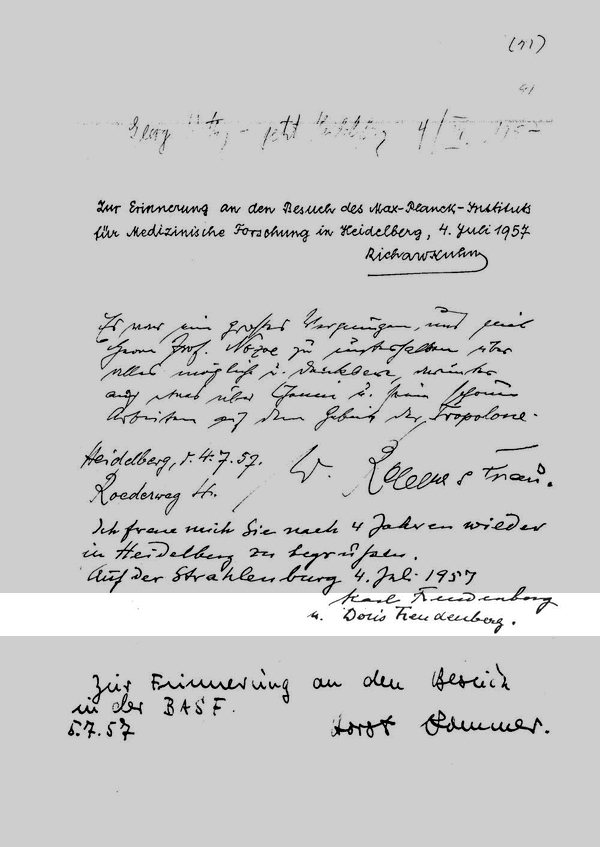 (71)
Georg Wittig - jetzt Heidelberg 4/
Zur Erinnerung an den Besuch des Max-Planck-Instituts
für Medizinische Forschung in Heidelberg, 4. Juli 1957
Richard Kuhn
Es war ein großes Vergnügen, mich mit
Herrn Prof. Nozoe zu unterhalten über
alles mögliche u.
auch etwas über Chemie u. seine schönen
Arbeiten auf dem Gebiet der Tropolone.
Heidelberg, d. 4.7.57.
W. u. Frau.
Roederweg 4.
Ich freue mich Sie nach 4 Jahren wieder
in Heidelberg zu begrüßen.
Auf der Strahlenburg 4. Juli 1957
Karl Freudenberg
u. Doris Freudenberg.
Zur Erinnerung an den Besuch
in der BASF.
5.7.57 Horst Pommer.